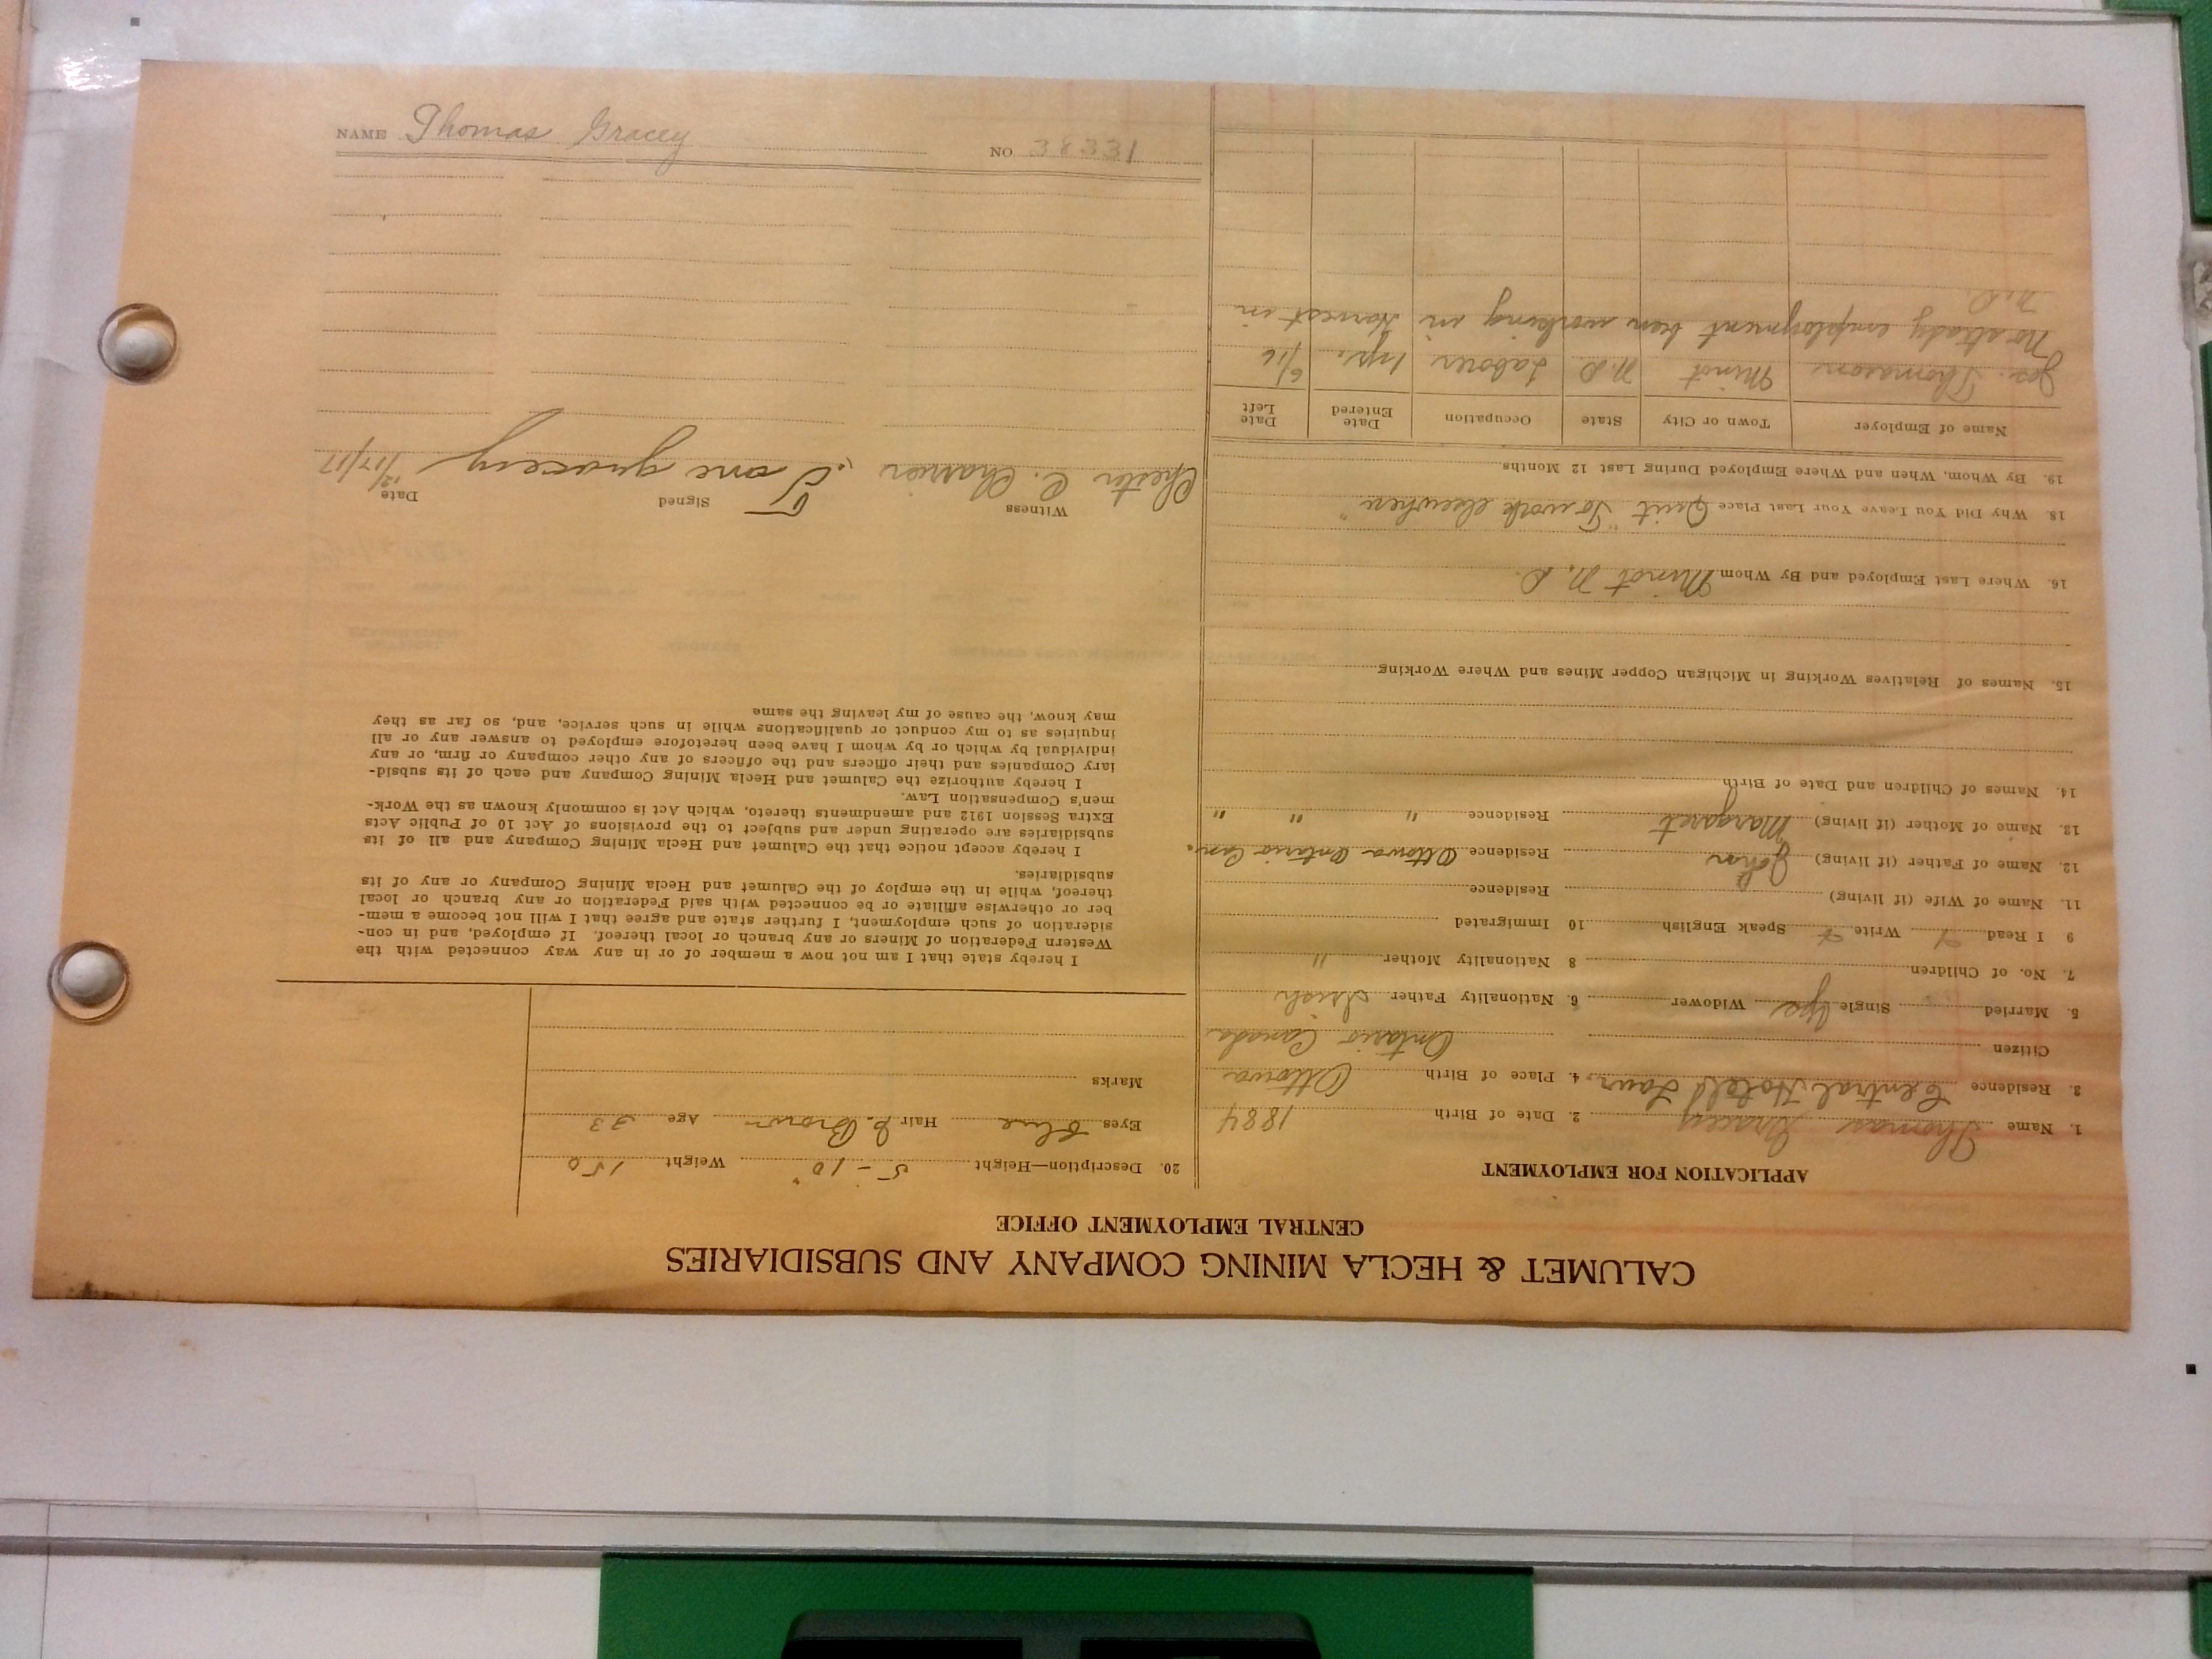 CALUMET & HECLA MINING COMPANY AND SUBSIDIARIES
CENTRAL EMPLOYMENT OFFICE
APPLICATION FOR EMPLOYMENT
1. Name Thomas Gracey 2. Date of Birth 1884
3. Residence Central Hotel 4. Place of Birth Ottowa
Citizen Ontario Canada
5. Married Single Yes Widower 6. Nationality Father Irish
7. No. of Children 8 Nationality Mother "
9 I Read Write Speak English 10 Immigrated
11. Name of Wife (if living) Residence
12. Name of Father (if living) John Residence Ottowa Ontario Can.
13. Name of Mother (if living) Margaret Residence " " "
14. Names of Children and Date of Birth
15. Names of Relatives Working in Michigan Copper Mines and Where Working
16. Where Last Employed and By Whom Minot N. D.
18. Why Did You Leave Your Last Place Quit "To work elsewhere"
19. By Whom, When and Where Employed During Last 12 Months
Name of Employer Town or City State Occupation Date Entered Date Left
Thomason Minot N.D. Laborer 1 yr. 6/16
No steady employment been working in Harvest in
N.D.
20. Description—Height 5-10" Weight 150
Eyes Blue Hair Brown Age 33
Marks
I hereby state that I am not now a member of or in any way connected with the
Western Federation of Miners or any branch or local thereof. If employed, and in con-
sideration of such employment, I further state and agree that I will not become a mem-
ber or otherwise affiliate or be connected with said Federation or any branch or local
thereof, while in the employ of the Calumet and Hecla Mining Company or any of its
subsidiaries.
I hereby accept notice that the Calumet and Hecla Mining Company and all of its
subsidiaries are operating under and subject to the provisions of Act 10 of Public Acts
Extra Session 1912 and amendments thereto, which Act is commonly known as the Work-
men's Compensation Law.
I hereby authorize the Calumet and Hecla Mining Company and each of its subsid-
iary Companies and their officers and the officers of any other company or firm, or any
individual by which or by whom I have been heretofore employed to answer any or all
inquiries as to my conduct or qualifications while in such service, and, so far as they
may know, the cause of my leaving the same
Witness Signed Date
Chester C. gracey 12/17/17
NAME Thomas Gracey NO 38331